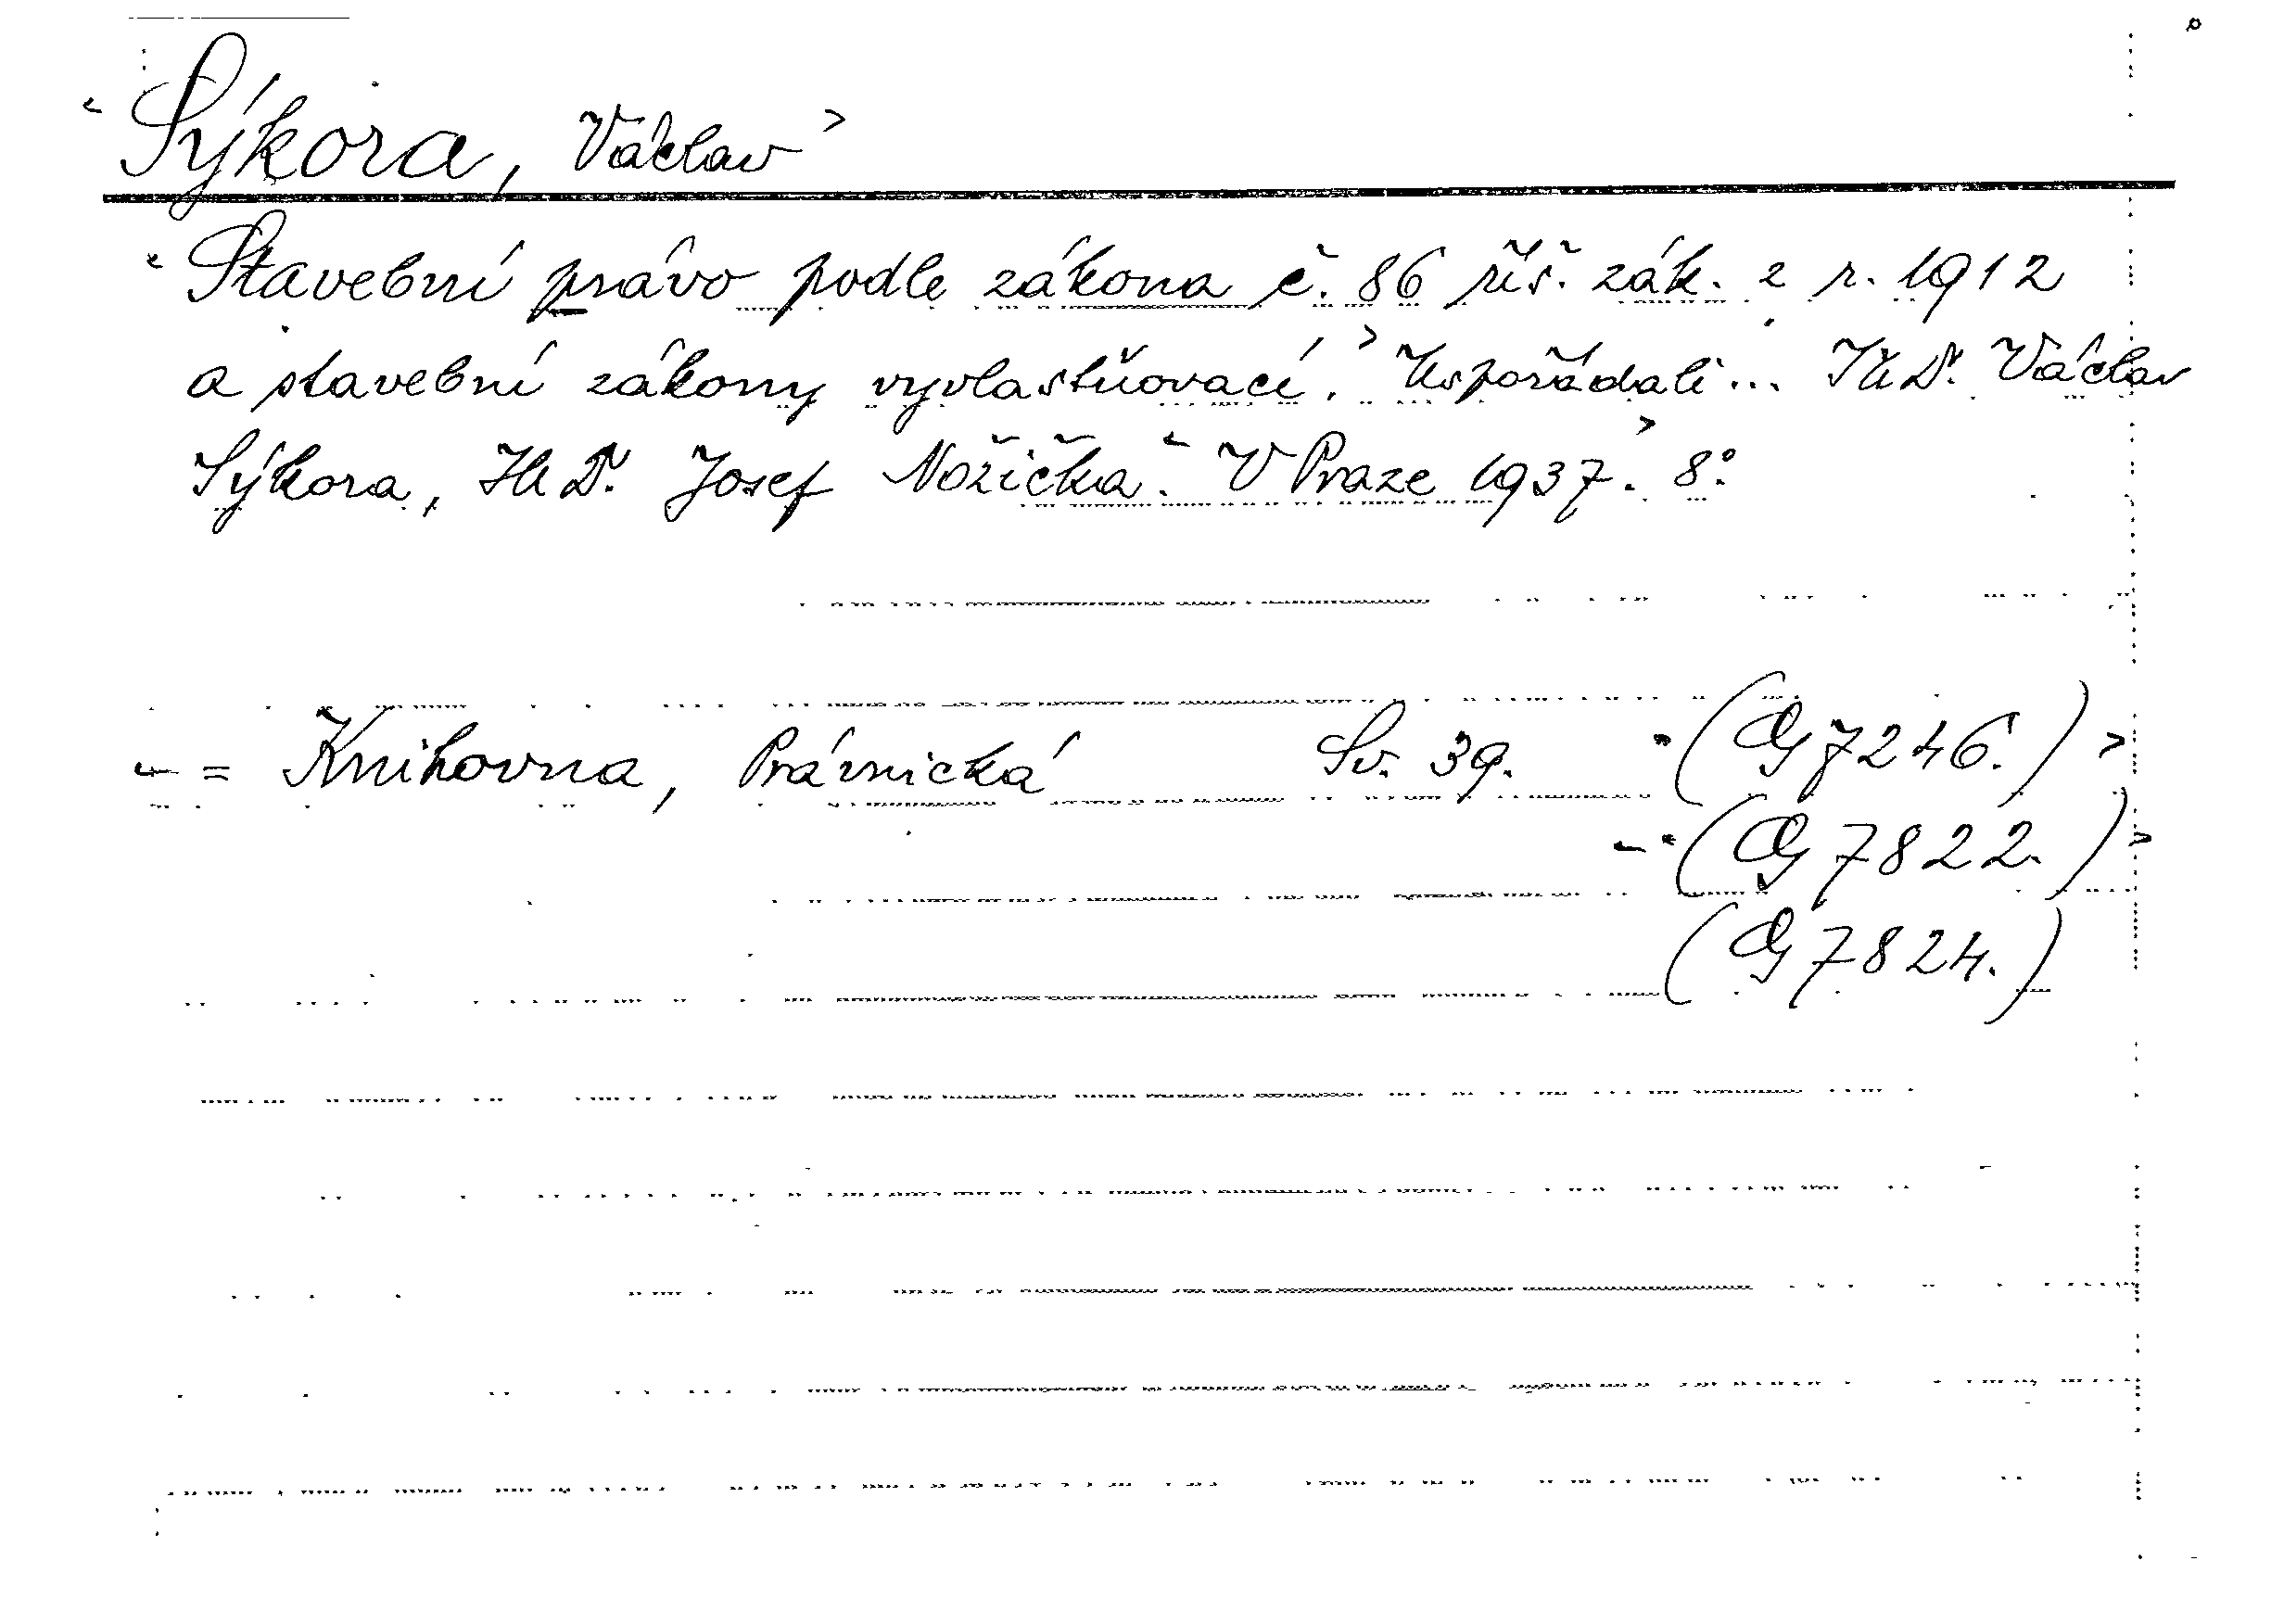 Sýkora, Václav
Stavební právo podle zákona č. 86 říš. zák. z r. 1912
a stavební zákony vyvlastňovací. Uspořádali... JUDr. Václav
Sýkora, JUDr. Josef Nožička. V Praze 1937. 8°.
= Knihovna, Právnická Sv. 39. (G 7246.)
(G 7822.)
(G 7824.)